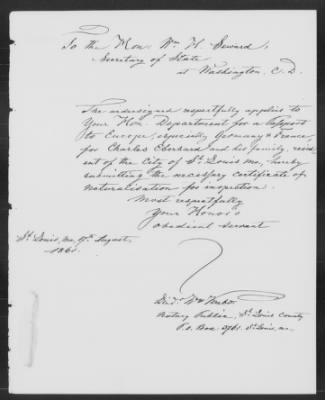 To the Hon. Wm H. Seward,
Secretary of State
at Washington, C. D.
The undersigned respectfully applies to
Your Hon. Department for a Passport
to Europe, especially Germany & France,
for Charles Eberhard and his family, resid-
ent of the City of St. Louis Mo, hereby
submitting the necessary certificate of
Naturalisation for inspection.
Most respectfully
Your Honor's
obedient servant
St. Louis, Mo, 17th August,
1861.
Wm
Notary Public, St. Louis County
P.O. Box 2761. St. Louis, Mo.